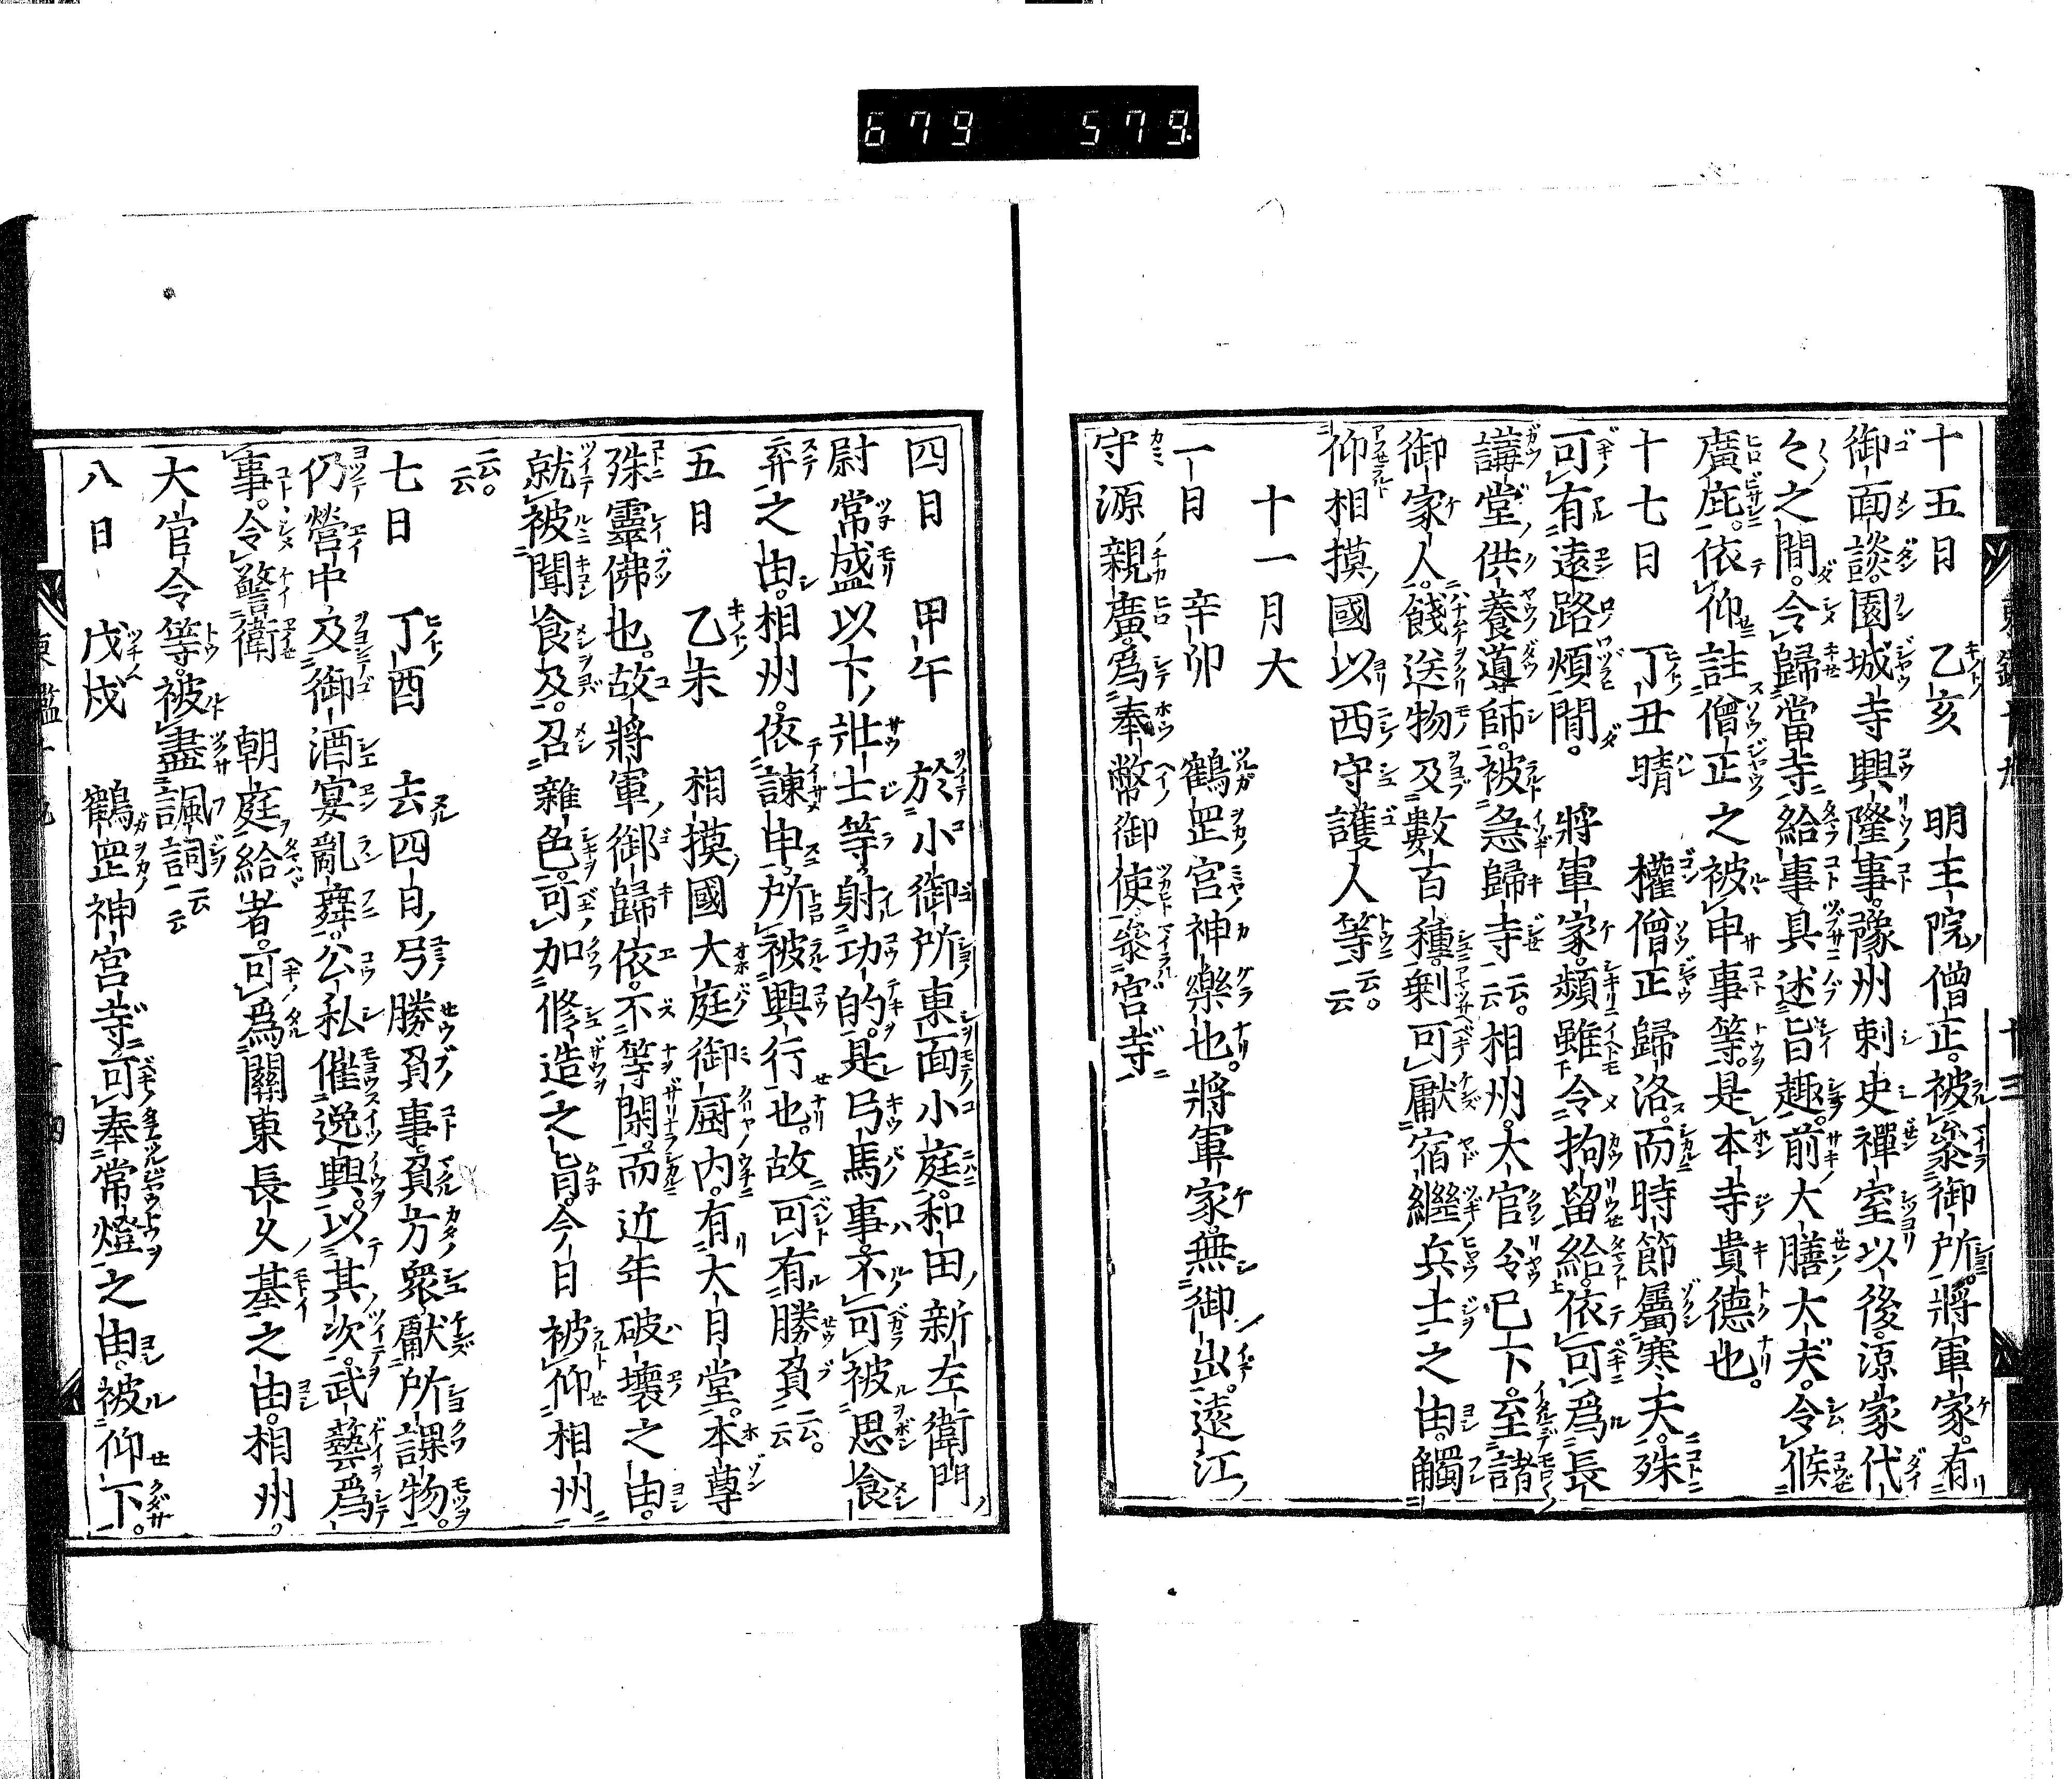 679 579
十五日 乙亥 明王院僧正。被參御所。將軍家。有
御面談。園城寺興隆事。豫州刺史禪室以後。源家代
々之間。令歸當寺給事具述旨趣。前大膳大夫。令候
廣庇。依仰註僧正之被申事等。是本寺貴德也。
十七日 丁丑晴 權僧正歸洛。而時節屬寒天。殊
可有遠路煩間。 將軍家。頻雖令拘留給。依可爲長
講堂供養導師。被急歸寺云云。相州。大官令已下。至諸
御家人。餞送物及數百種。剩可獻宿繼兵士之由。觸
仰相摸國以西守護人等云云。
十一月大
一日 辛卯 鶴罡宮神樂也。將軍家無御出。遠江
守源親廣。爲奉幣御使參宮寺
四日 甲午 於小御所東面小庭。和田新左衛門
尉常盛以下壯士等。射功的。是弓馬事。不可被思食
弃之由。相州。依諫申所被興行也。故可有勝負云云。
五日 乙未 相摸國大庭御厨内。有大日堂。本尊
殊靈佛也。故將軍御歸依。不等閑。而近年破壞之由。
就被聞食及。召雜色。可加修造之旨。今日被仰相州
云云。
七日 丁酉 去四日弓勝負事負方衆獻所課物。
仍營中及御酒宴亂舞。公私催逸興。以其次。武藝爲
事。令警衛 朝庭給者。可爲關東長久基之由。相州。
大官令等。被盡諷詞云云
八日 戊戌 鶴罡神宮寺可奉常燈之由。被仰下。